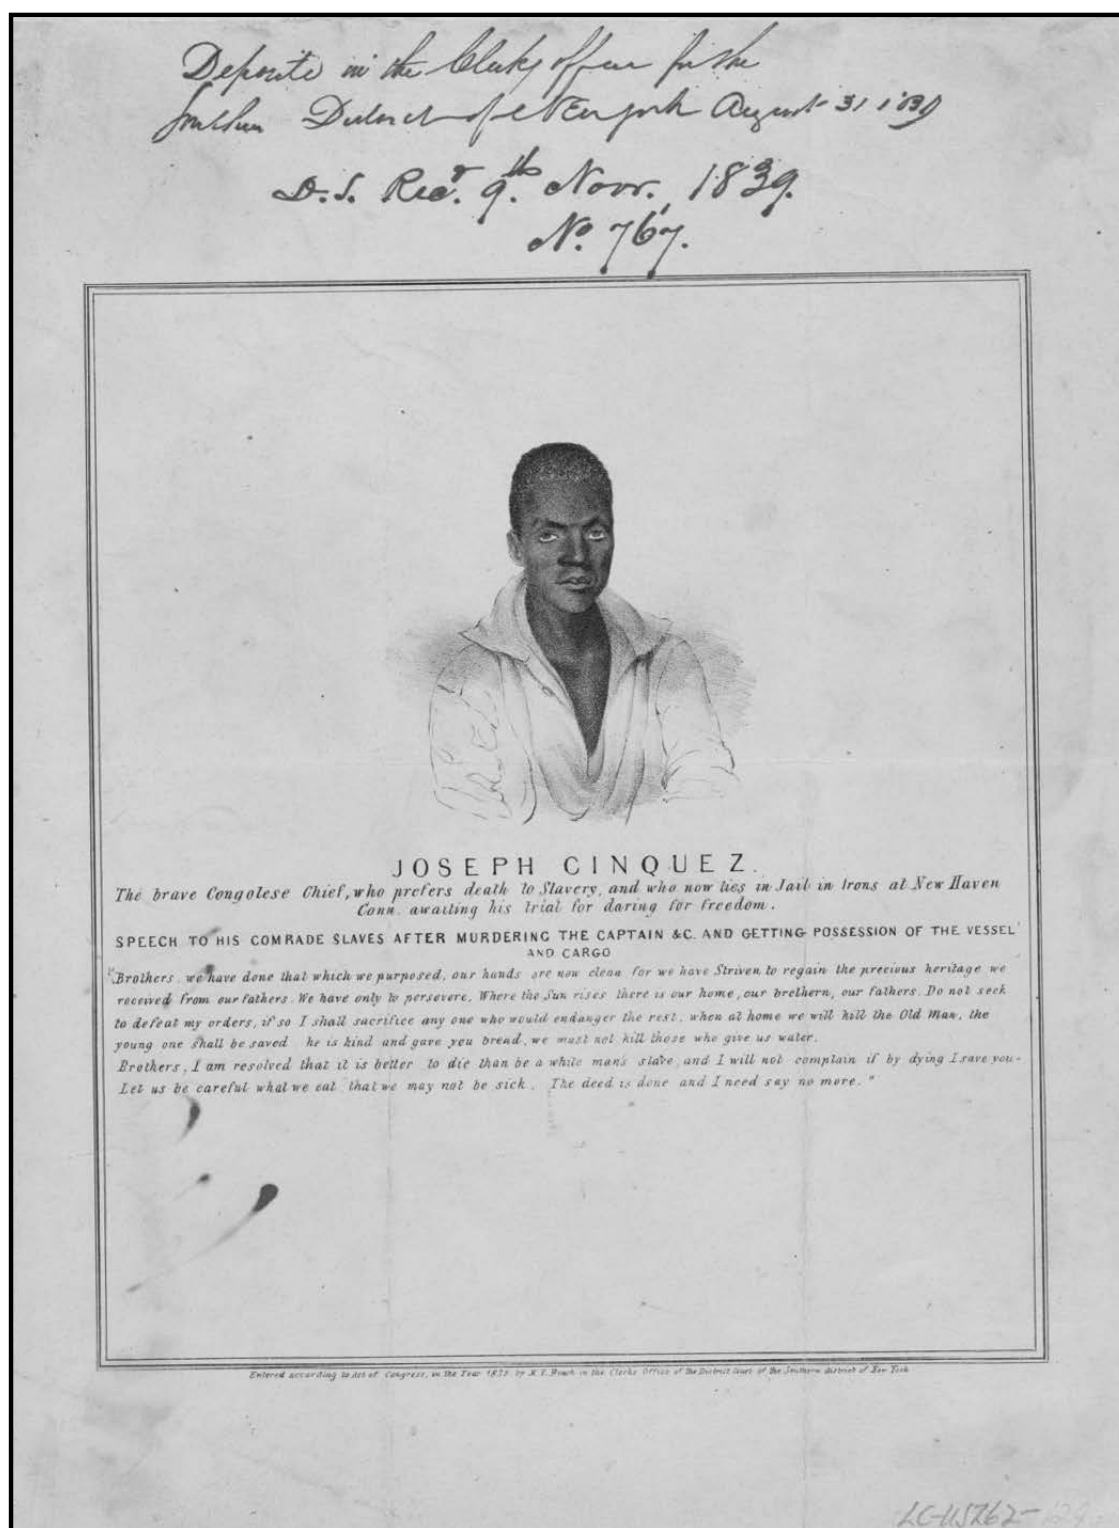 Deposite in the Clerks office for the
Southern District of New York August 31 1839
D.S. Recd. 9th. Novr., 1839.
No. 767.
JOSEPH CINQUEZ.
The brave Congolese Chief, who prefers death to Slavery, and who now lies in Jail in Irons at New Haven
Conn. awaiting his trial for daring for freedom.
SPEECH TO HIS COMRADE SLAVES AFTER MURDERING THE CAPTAIN &C. AND GETTING POSSESSION OF THE VESSEL
AND CARGO
"Brothers, we have done that which we purposed, our hands are now clean for we have Striven to regain the precious heritage we
received from our fathers. We have only to persevere. Where the Sun rises there is our home, our brethern, our fathers. Do not seek
to defeat my orders, if so I shall sacrifice any one who would endanger the rest, when at home we will kill the Old Man, the
young one shall be saved he is kind and gave you bread, we must not kill those who give us water.
Brothers, I am resolved that it is better to die than be a white man's slave, and I will not complain if by dying I save you-
Let us be careful what we eat that we may not be sick. The deed is done and I need say no more."
Entered according to Act of Congress, in the Year 1839 by in the Clerks Office of the District Court of the Southern District of New York
LC-USZ62-